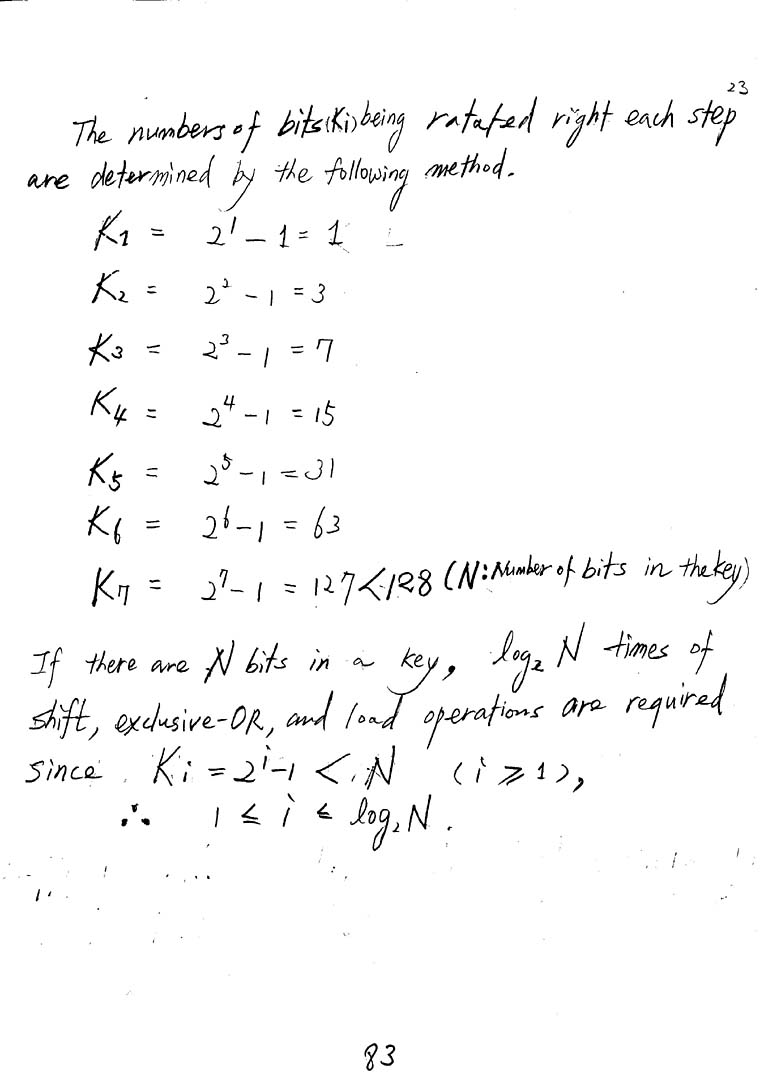 23
The numbers of bits(Ki) being ratated right each step
are determined by the following method.
K1 = 2¹ - 1 = 1
K2 = 2² - 1 = 3
K3 = 2³ - 1 = 7
K4 = 2⁴ - 1 = 15
K5 = 2⁵ - 1 = 31
K6 = 2⁶ - 1 = 63
K7 = 2⁷ - 1 = 127 < 128 (N: Number of bits in the key)
If there are N bits in a key, log₂ N times of
shift, exclusive-OR, and load operations are required
since Ki = 2ⁱ-1 < N (i ⩾ 1),
∴ 1 ≤ i ≤ log₂ N.
83